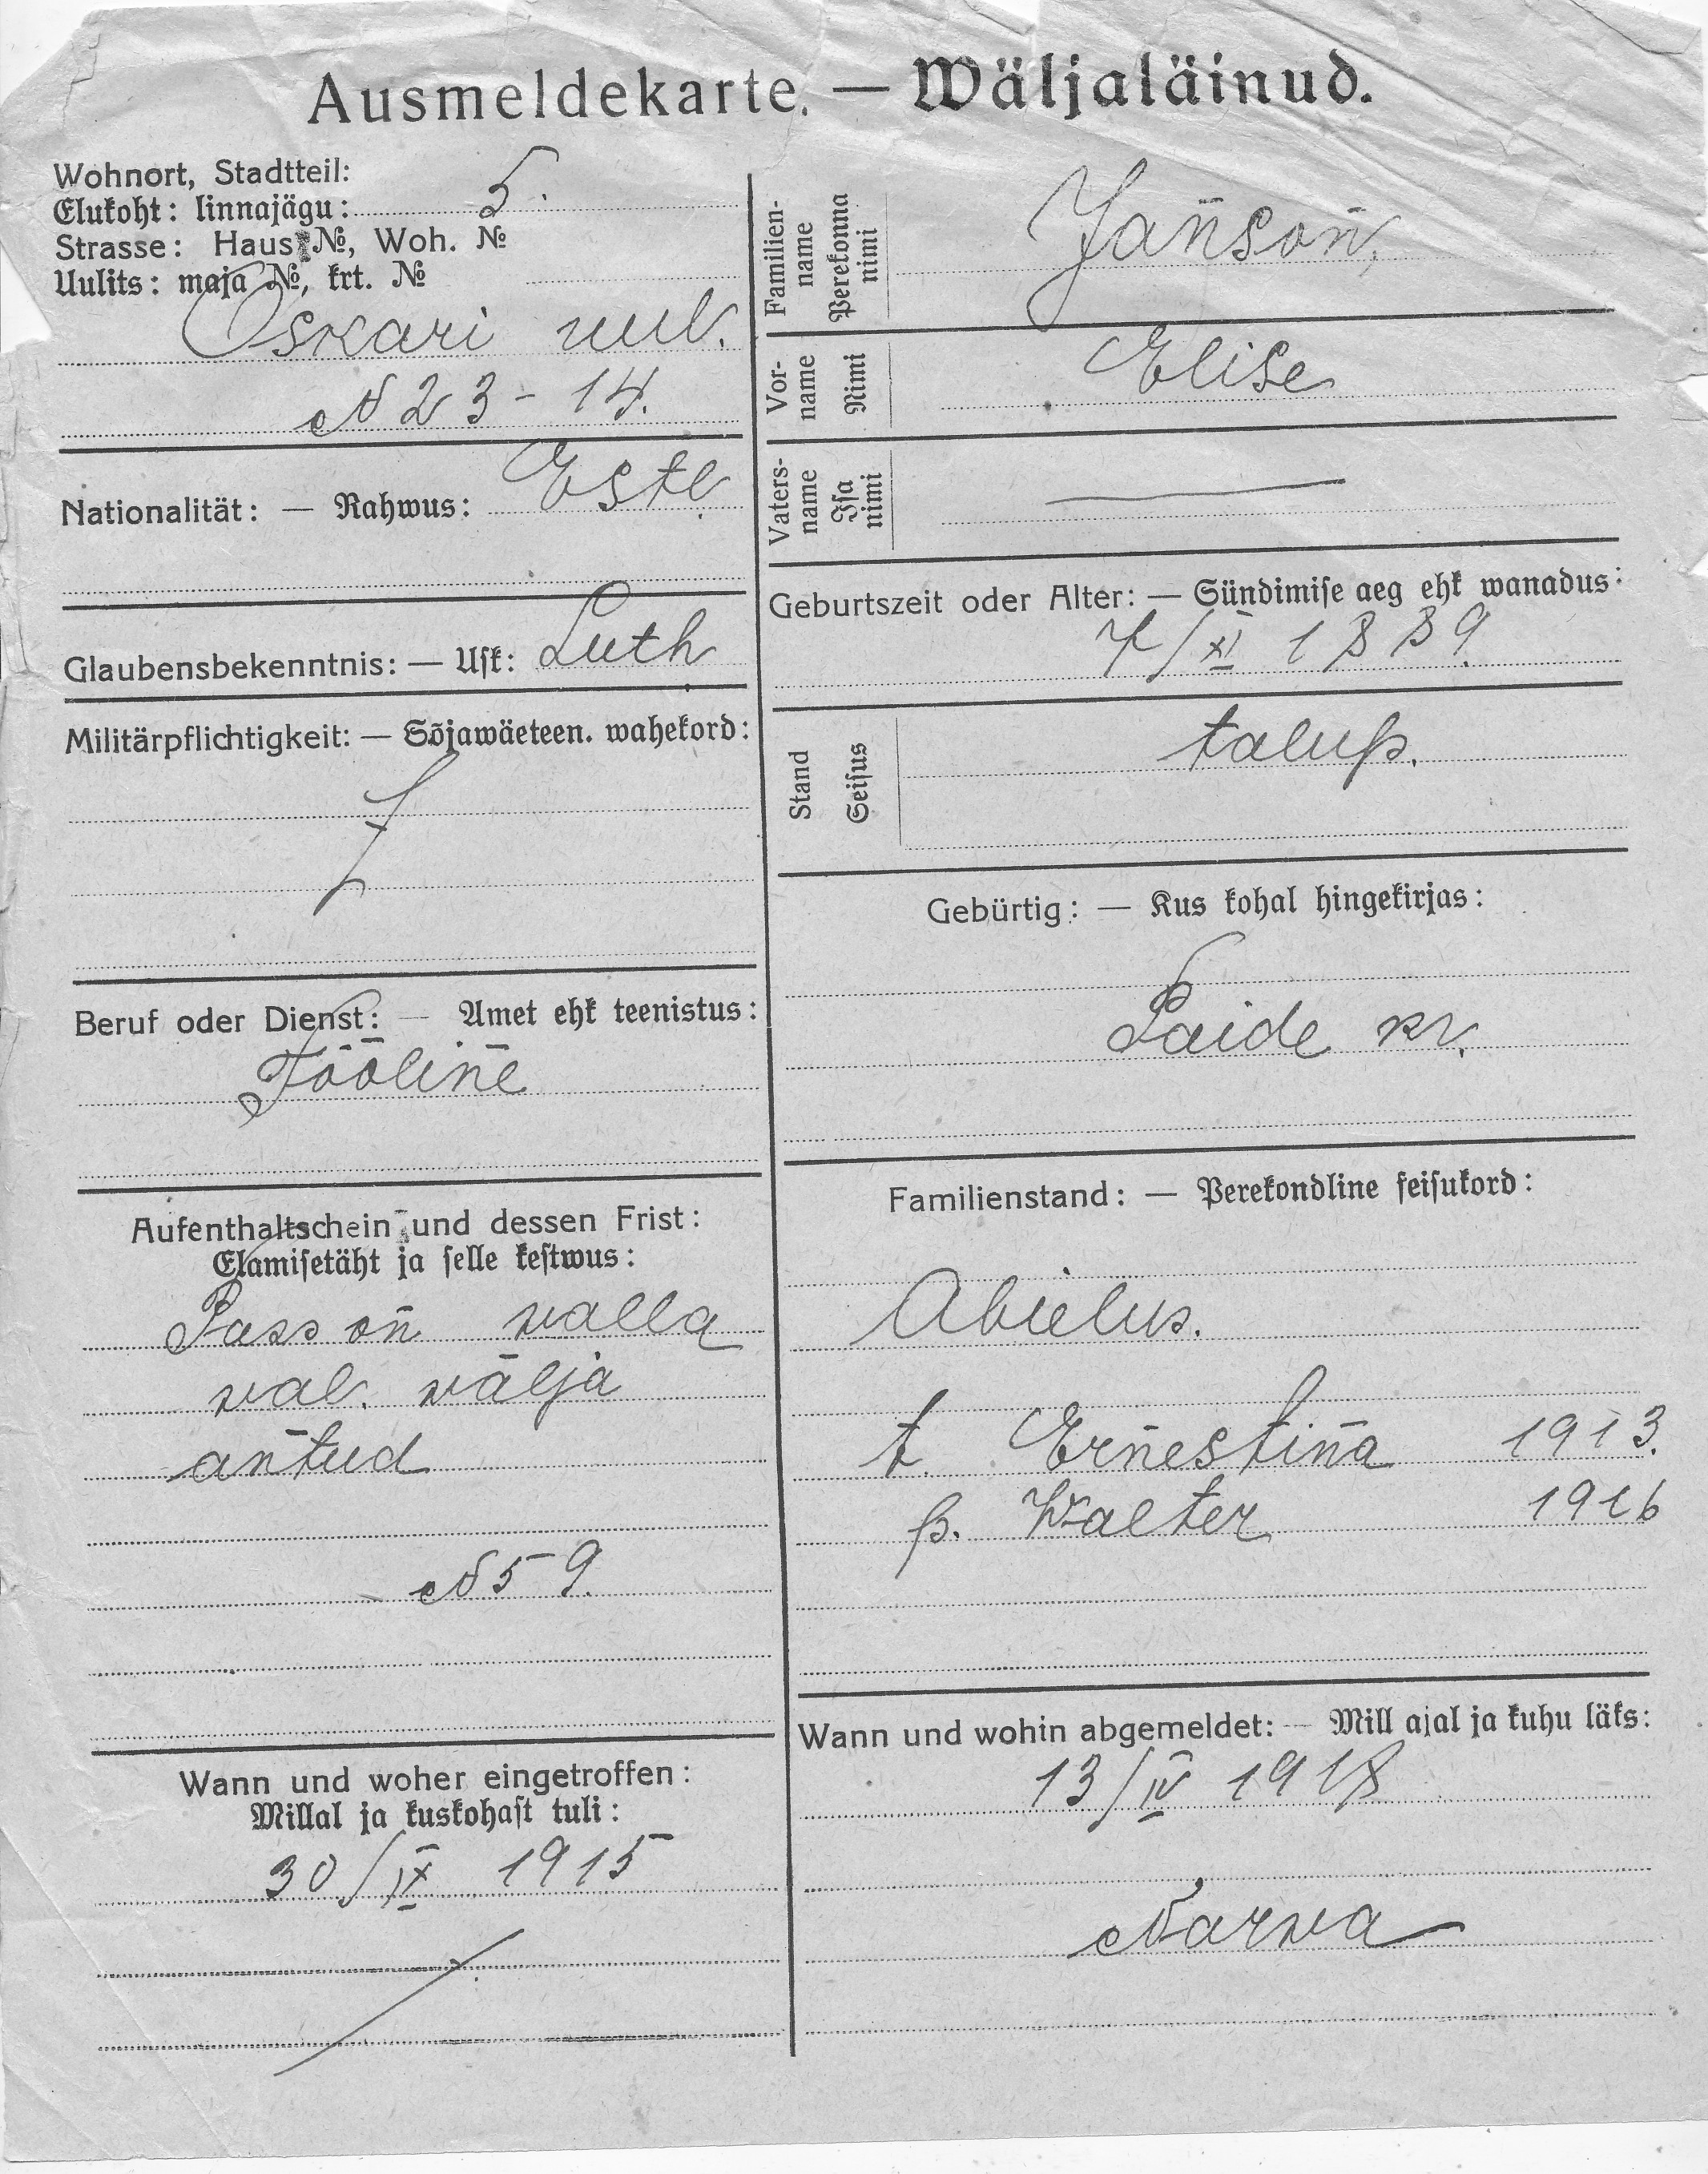 Ausmeldekarte. — Wäljaläinud.
Wohnort, Stadtteil:
Elukoht: linnajägu: 5.
Strasse: Haus №, Woh. №
Uulits: maja №, krt. №
Oskari uul.
N 23 - 14.
Nationalität: — Rahwus: Estl.
Glaubensbekenntnis: — Uſk: Luth
Militärpflichtigkeit: — Sõjawäeteen. wahekord:
Beruf oder Dienst: — Amet ehk teenistus:
Tööline
Aufenthaltschein und dessen Frist:
Elamiſetäht ja ſelle keſtwus:
Pass on walla
wal. wälja
antud
N 59.
Wann und woher eingetroffen:
Millal ja kuskohaſt tuli:
30/IX 1915
Familien-
name
Perekonna
nimi
Janson,
Vor-
name
Nimi
Elise
Vaters-
name
Iſa
nimi
—
Geburtszeit oder Alter: — Sündimiſe aeg ehk wanadus:
7/XI 1889.
Stand
Seiſus
talup.
Gebürtig: — Kus kohal hingekirjas:
Paide kr.
Familienstand: — Perekondline ſeiſukord:
Abielus.
t. Ernestina 1913.
p. Walter 1916
Wann und wohin abgemeldet: — Mill ajal ja kuhu läks:
13/IV 1918
Narwa